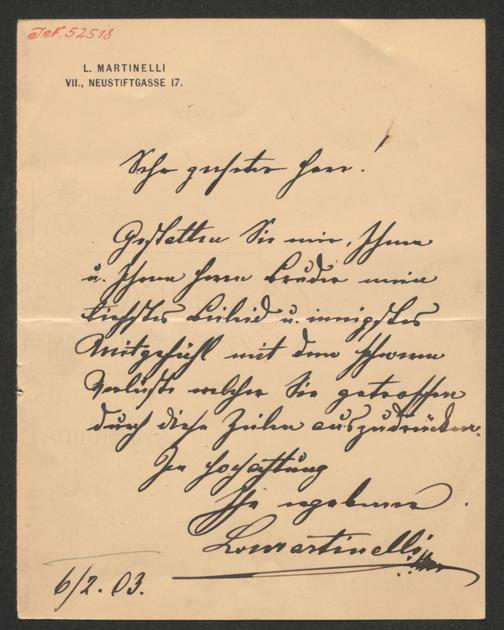 J.N. 52518
L. MARTINELLI
VII., NEUSTIFTGASSE 17.
Sehr geehrter Herr!
Gestatten Sie mir, Ihnen
u. Ihrem Herrn Bruder mein
tiefstes Beileid u. innigstes
Mitgefühl mit dem schweren
Verluste welcher Sie getroffen
durch diese Zeilen auszudrücken.
In Hochachtung
Ihr ergebener
L. Martinelli
6/2. 03.